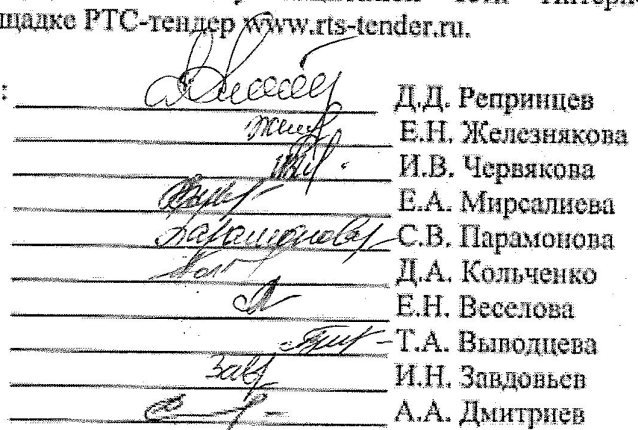 щадке РТС-тендер www.rts-tender.ru.
: Д.Д. Репринцев
Е.Н. Железнякова
И.В. Червякова
Е.А. Мирсалиева
Парамонова С.В. Парамонова
Д.А. Кольченко
Е.Н. Веселова
Т.А. Выводцева
Зав И.Н. Завдовьев
А.А. Дмитриев